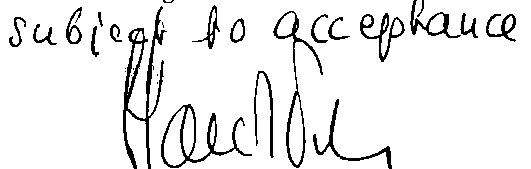 subject to acceptance